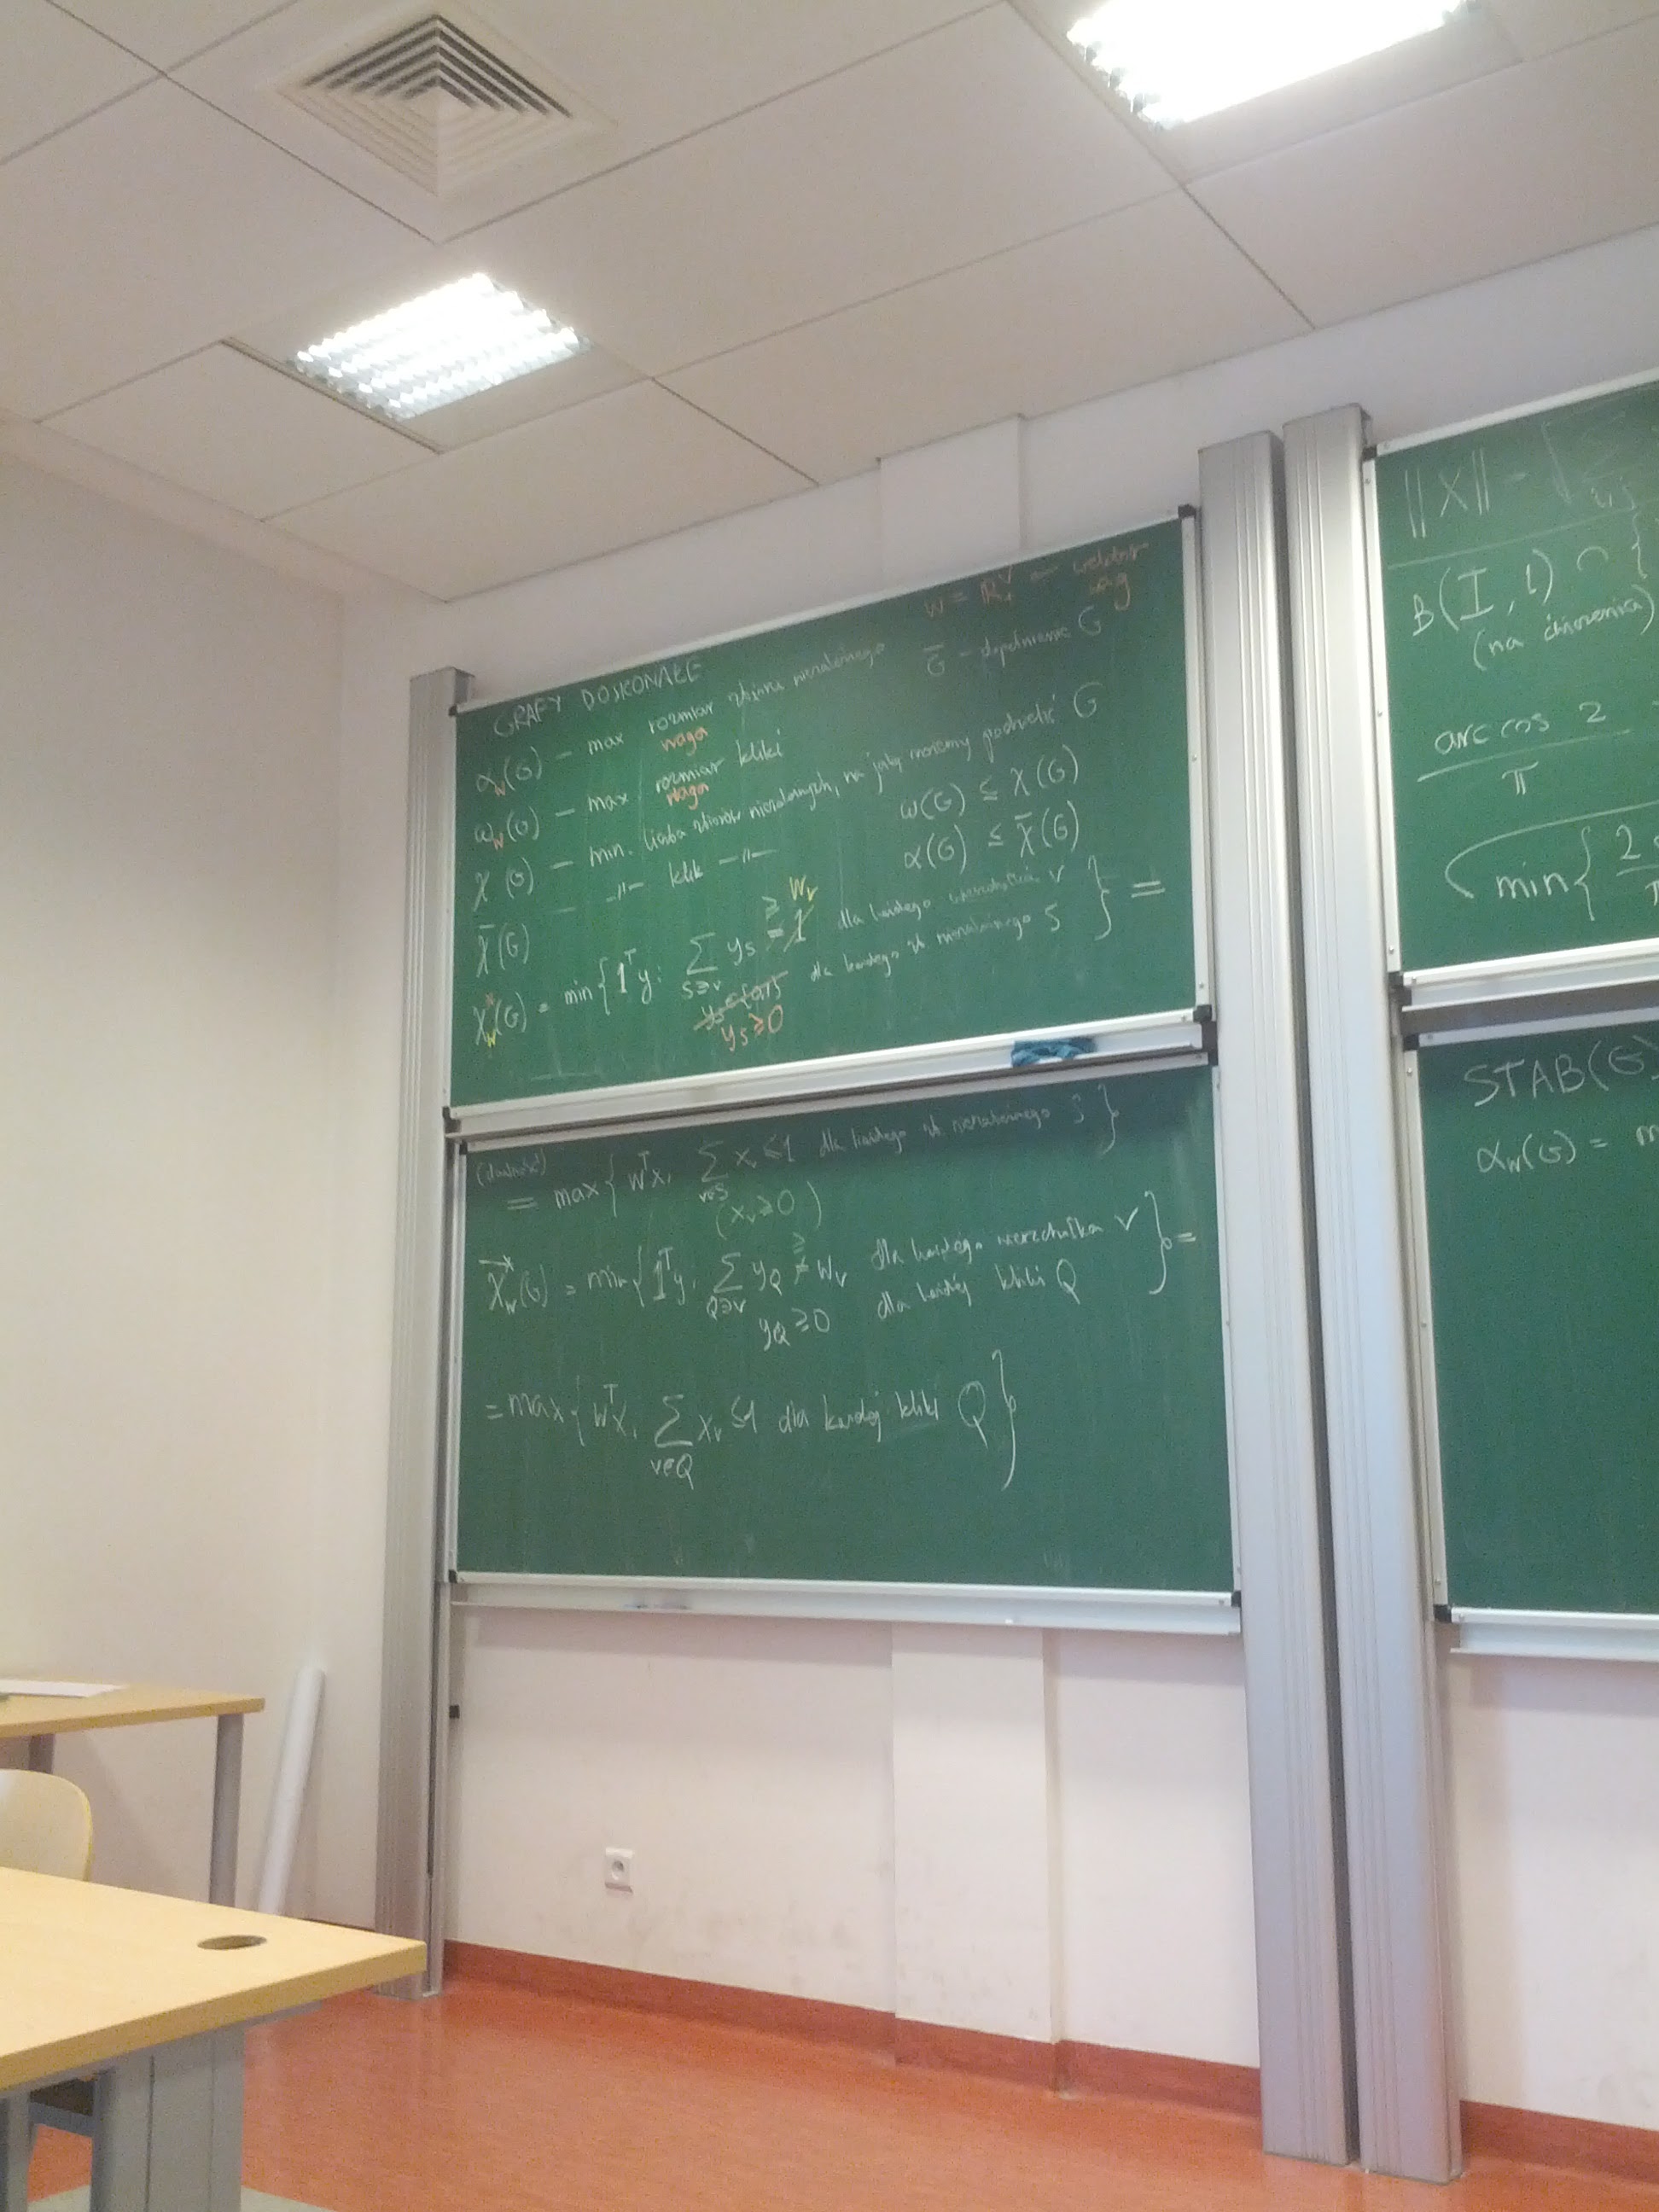 GRAFY DOSKONAŁE
w = ℝ₊^V — wektor wag
α_w(G) — max rozmiar zbioru niezależnego
waga
G̅ — dopełnienie G
ω_w(G) — max rozmiar kliki
waga
χ(G) — min. liczba zbiorów niezależnych, na jaką możemy podzielić G
χ̅(G) — —〃— klik —〃—
ω(G) ≤ χ(G)
α(G) ≤ χ̅(G)
χ*_w(G) = min{ 1ᵀy : ∑_{S∋v} y_S ≥ w_v dla każdego wierzchołka v
y_S ≥ 0 dla każdego zb niezależnego S } =
(dualność)
= max{ wᵀx, ∑_{v∈S} x_v ≤ 1 dla każdego zb niezależnego S }
(x_v ≥ 0)
χ̅*_w(G) = min{ 1ᵀy, ∑_{Q∋v} y_Q ≥ w_v dla każdego wierzchołka v
y_Q ≥ 0 dla każdej kliki Q } =
= max{ wᵀx, ∑_{v∈Q} x_v ≤ 1 dla każdej kliki Q }
‖X‖ = √∑
B(I, 1) ∩ {
(na ćwiczenia)
arc cos 2
π
min{ 2
π
STAB(G)
α_w(G) = m